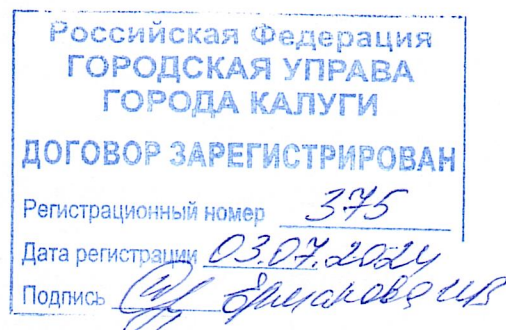 Российская Федерация
ГОРОДСКАЯ УПРАВА
ГОРОДА КАЛУГИ
ДОГОВОР ЗАРЕГИСТРИРОВАН
Регистрационный номер 375
Дата регистрации 03.07.2024
Подпись Ермакова ИВ